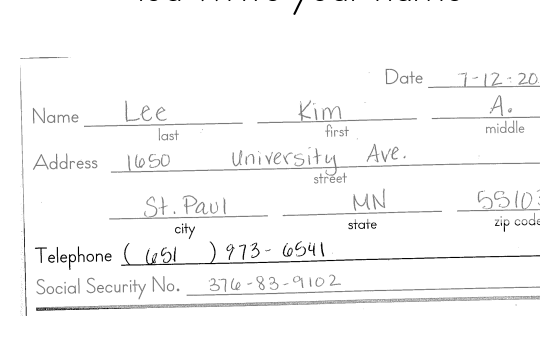 your name
Date 7-12-20
Name Lee Kim A.
last first middle
Address 1650 University Ave.
street
St. Paul MN 55103
city state zip code
Telephone ( 651 ) 973-6541
Social Security No. 376-83-9102